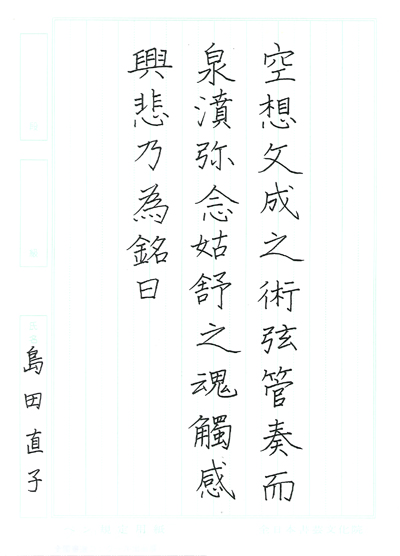 空想文成之術弦管奏而
泉濆弥念姑舒之魂觸感
興悲乃為銘曰
島田直子